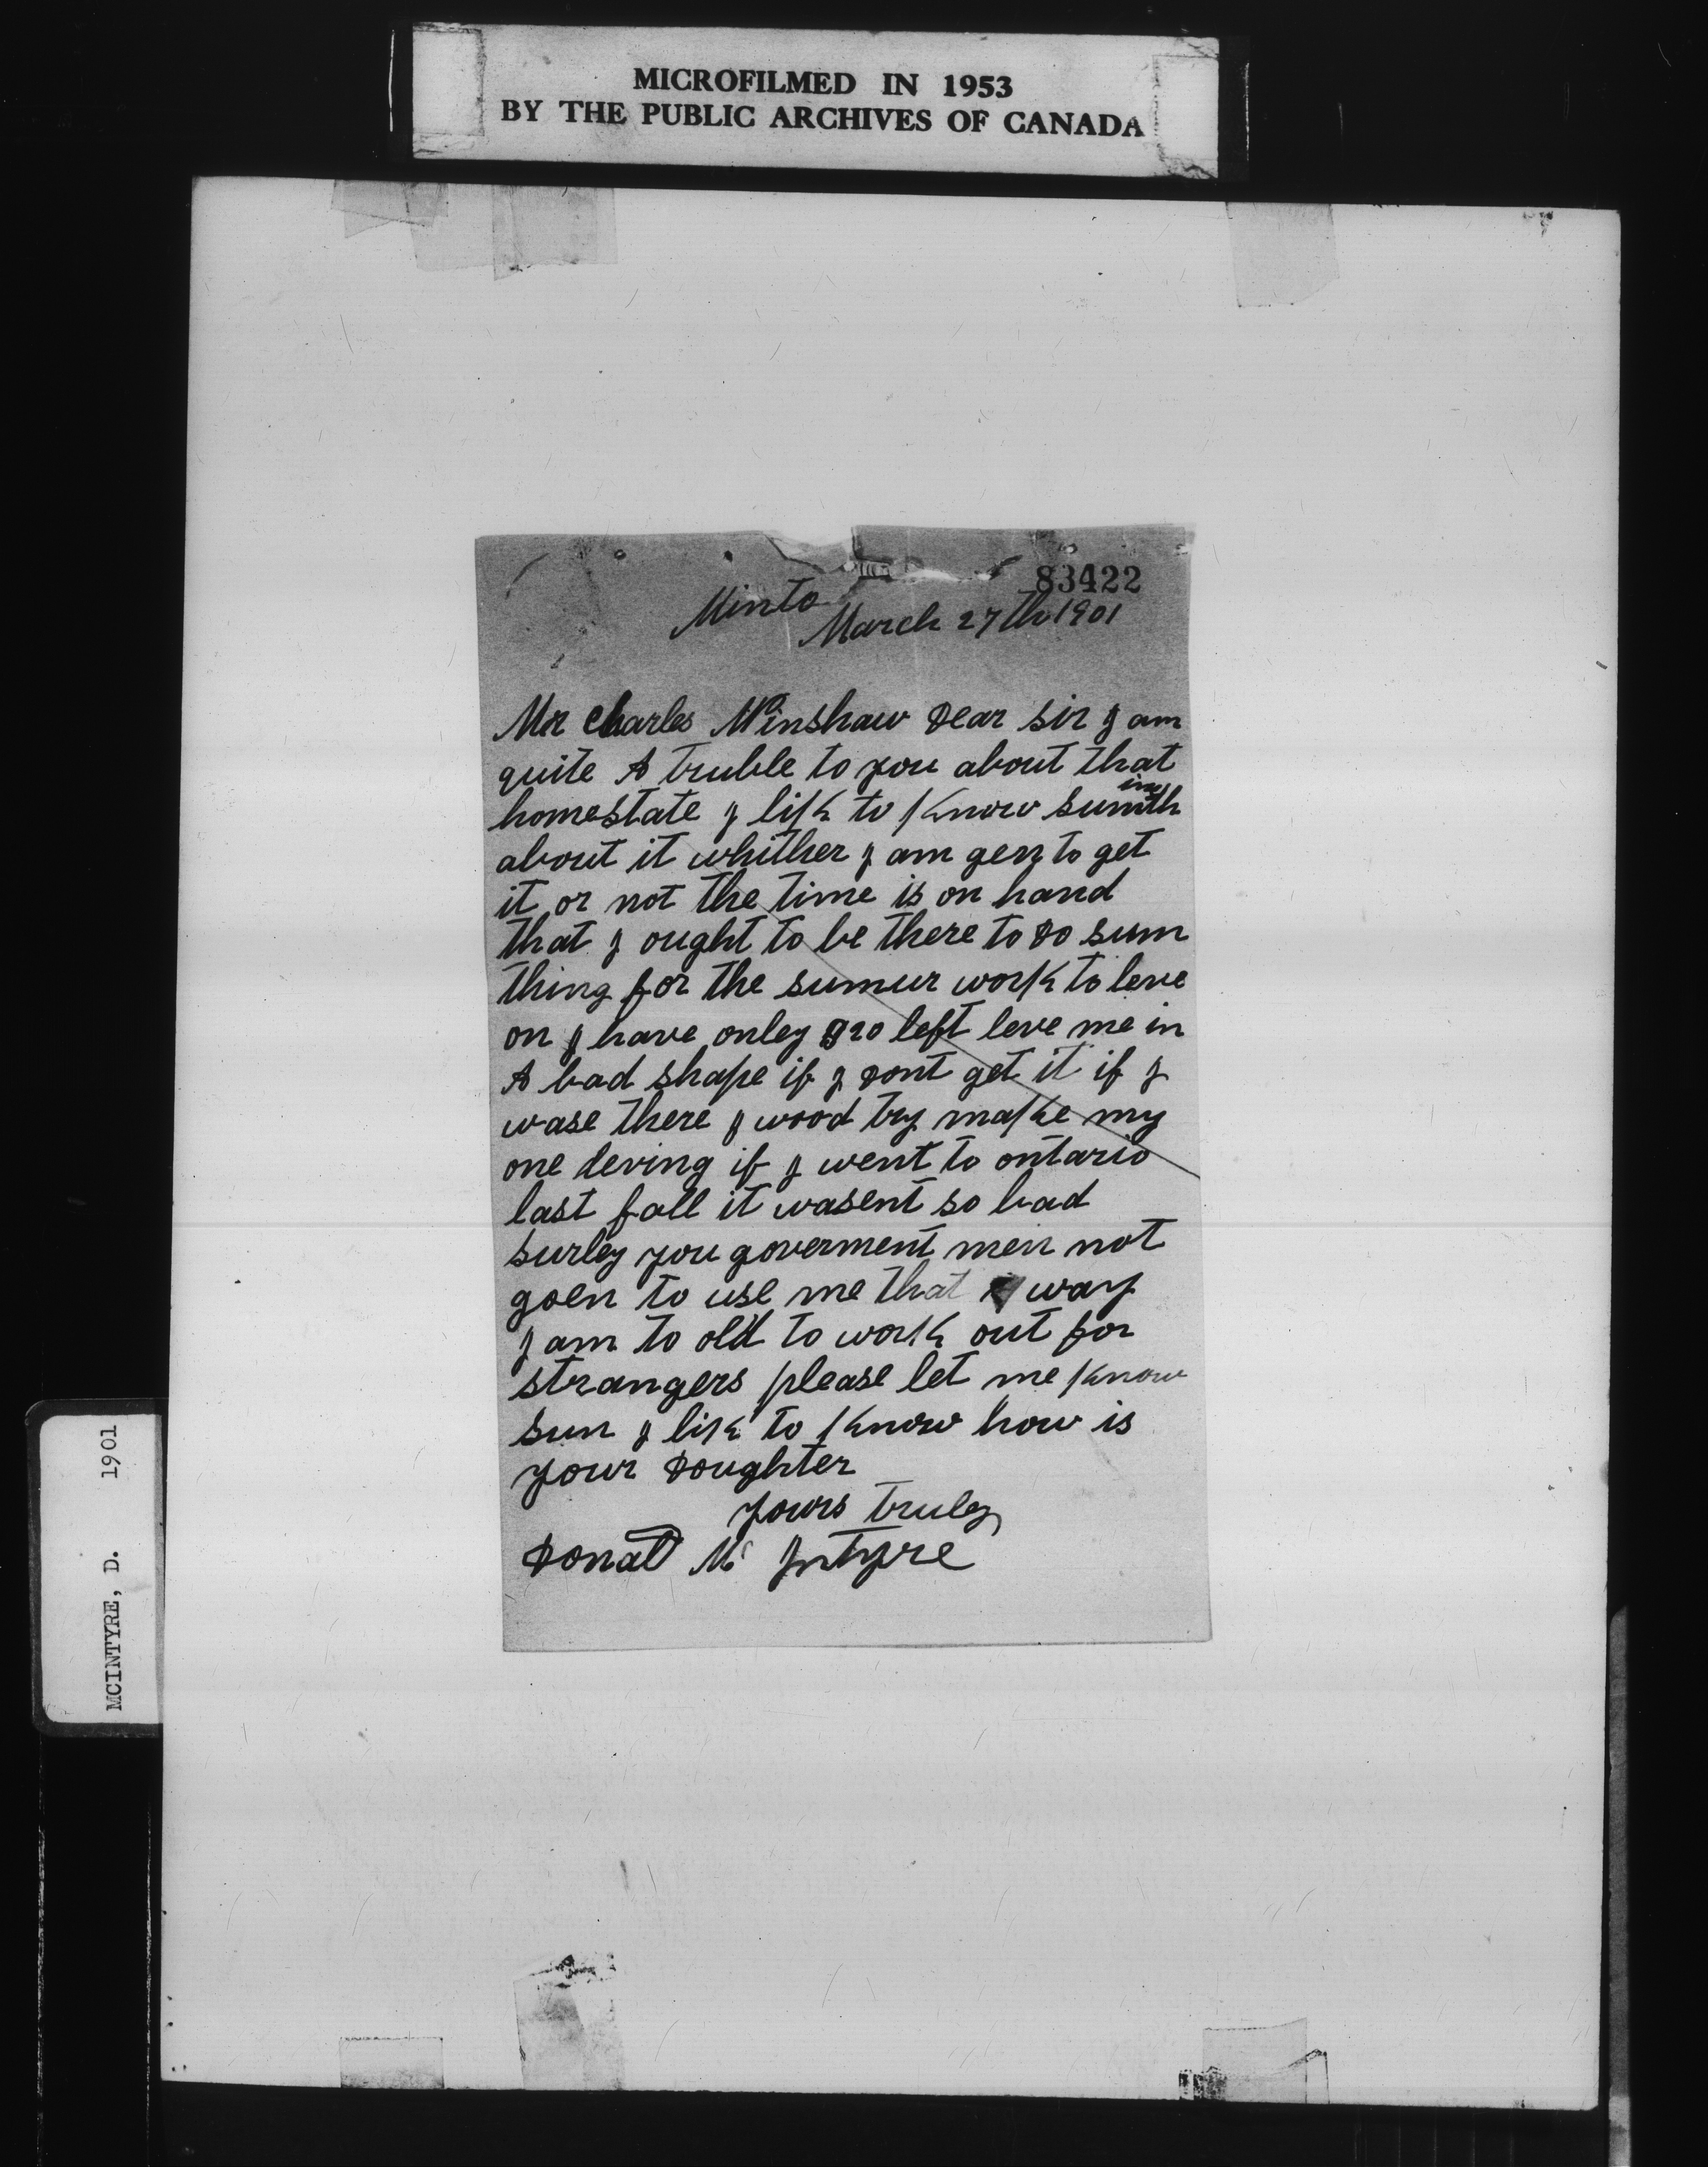 MICROFILMED IN 1953
BY THE PUBLIC ARCHIVES OF CANADA
83422
Minto
March 27th 1901
Mr Charles Winshaw Dear sir I am
quite A truble to you about that
homestate I lik to know sumthing
about it whither I am gen to get
it or not the time is on hand
that I ought to be there to do sum
thing for the sumur work to leve
on I have onley $20 left leve me in
A bad shape if I dont get it if I
wase there I wood try make my
one leving if I went to ontario
last fall it wasent so bad
surley you goverment men not
goen to use me that way
I am to old to work out for
strangers please let me know
sun I lik to know how is
your Doughter
yours truley
Donald Mc Intyre
MCINTYRE, D. 1901